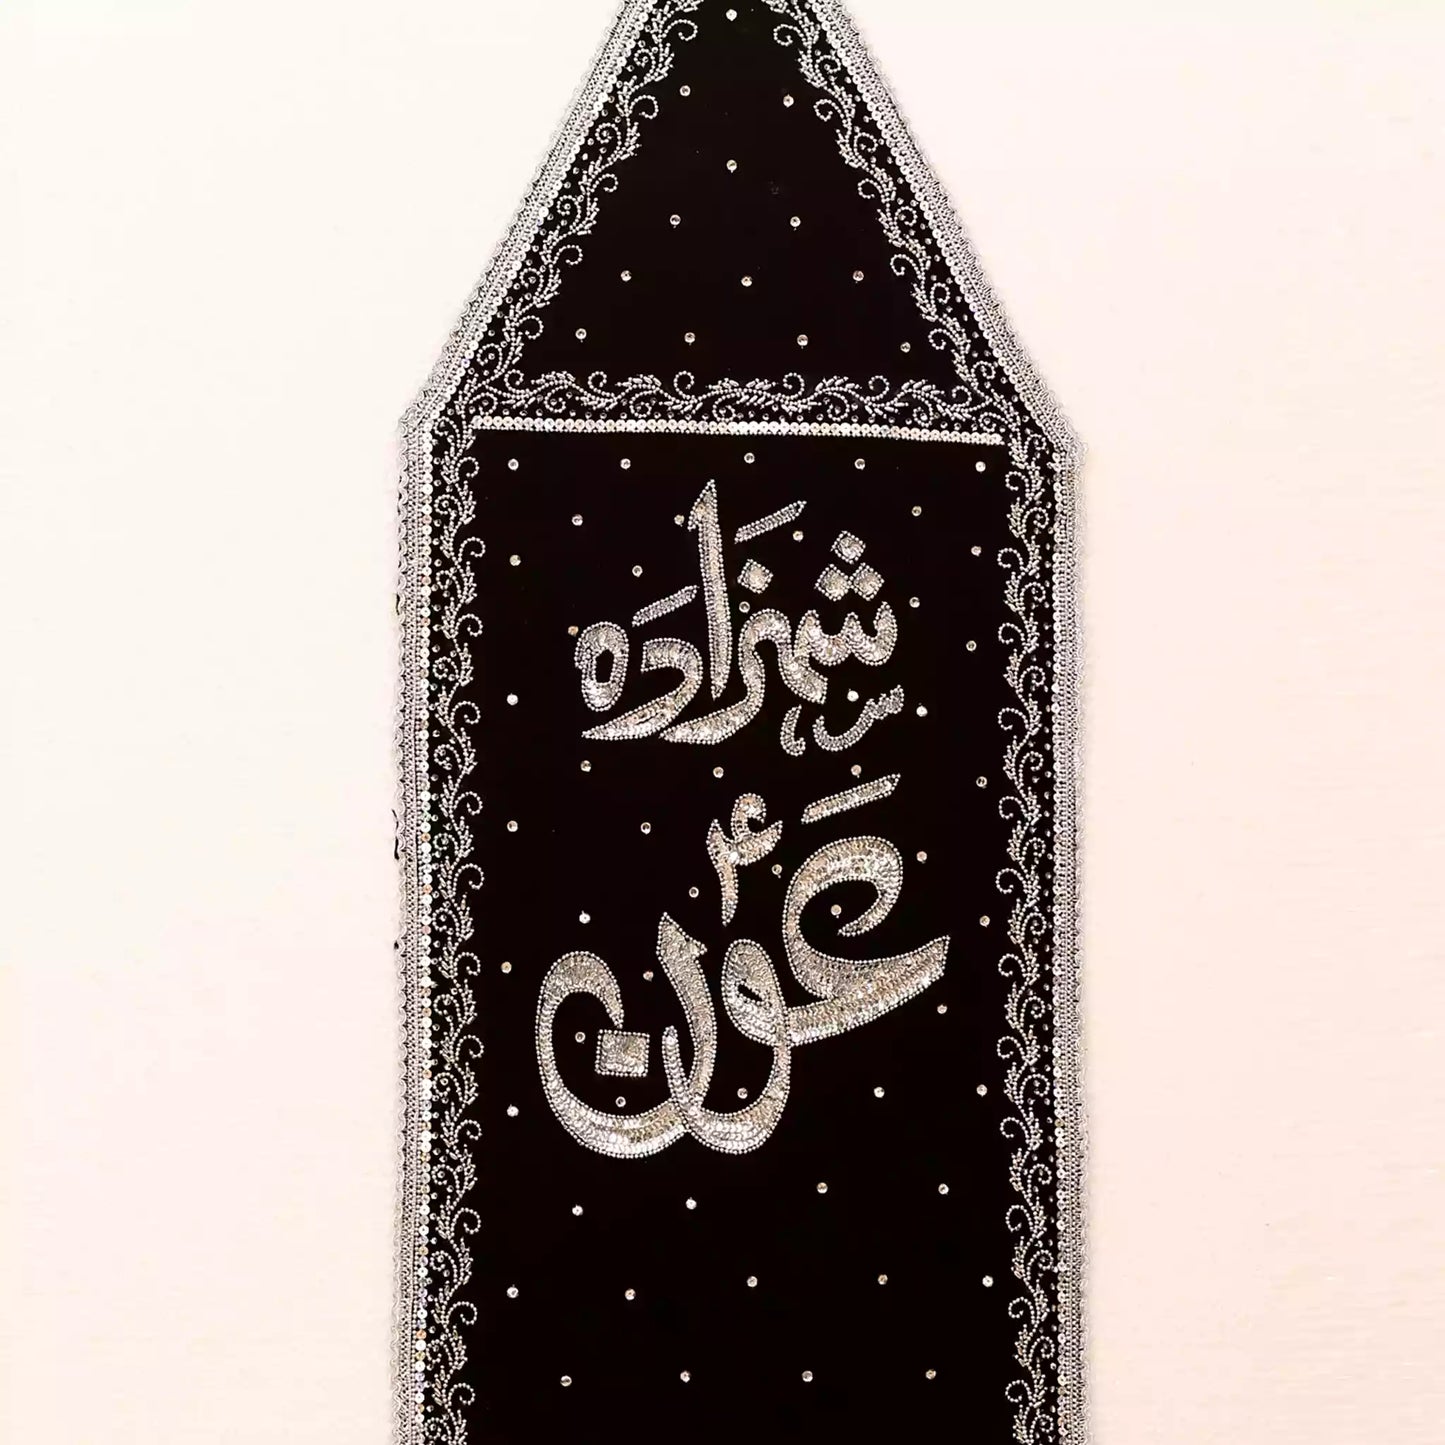 شہزَادَہ
عَونؑ